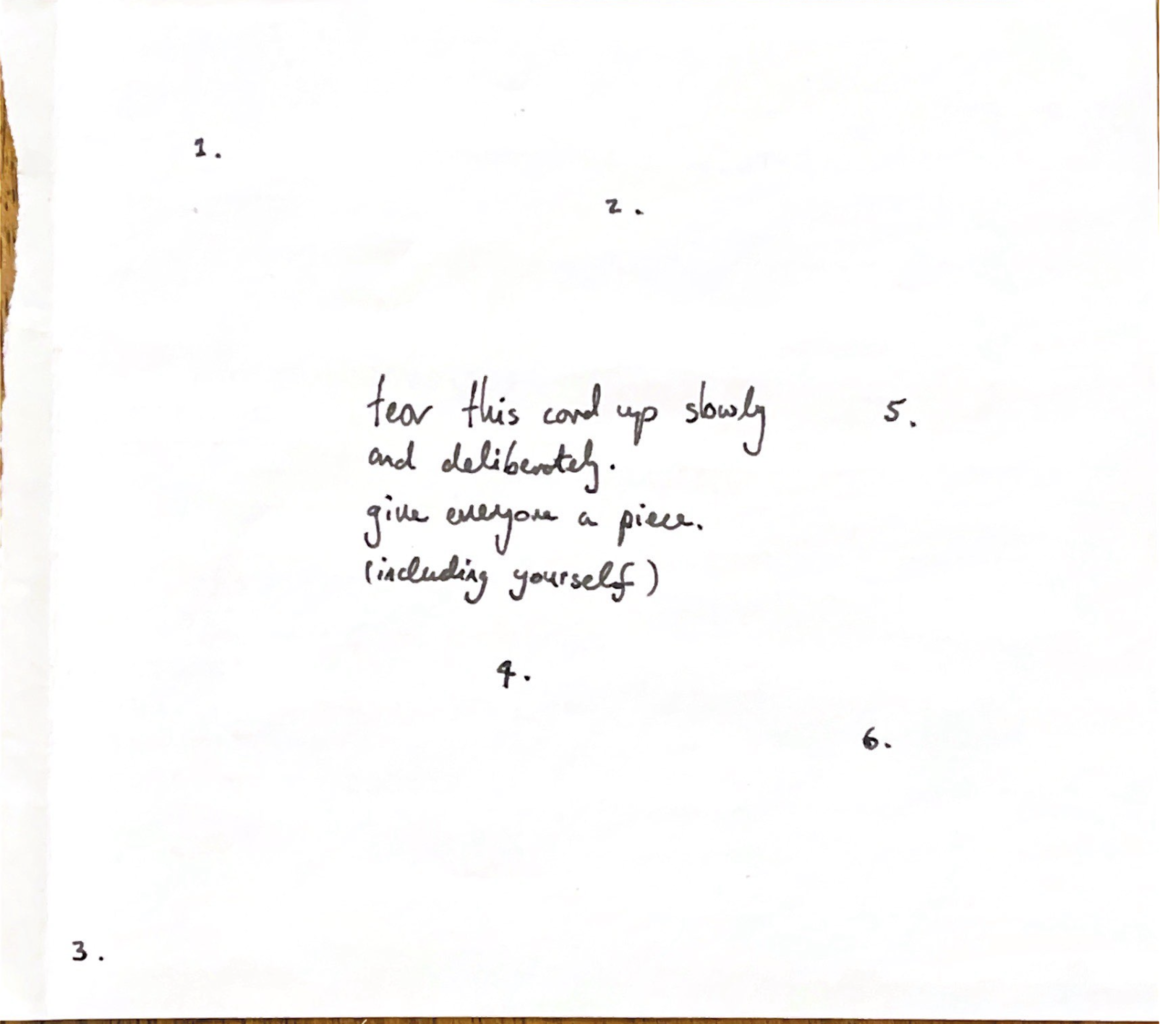 1.
2.
tear this card up slowly
and deliberately.
give everyone a piece.
(including yourself)
5.
4.
6.
3.